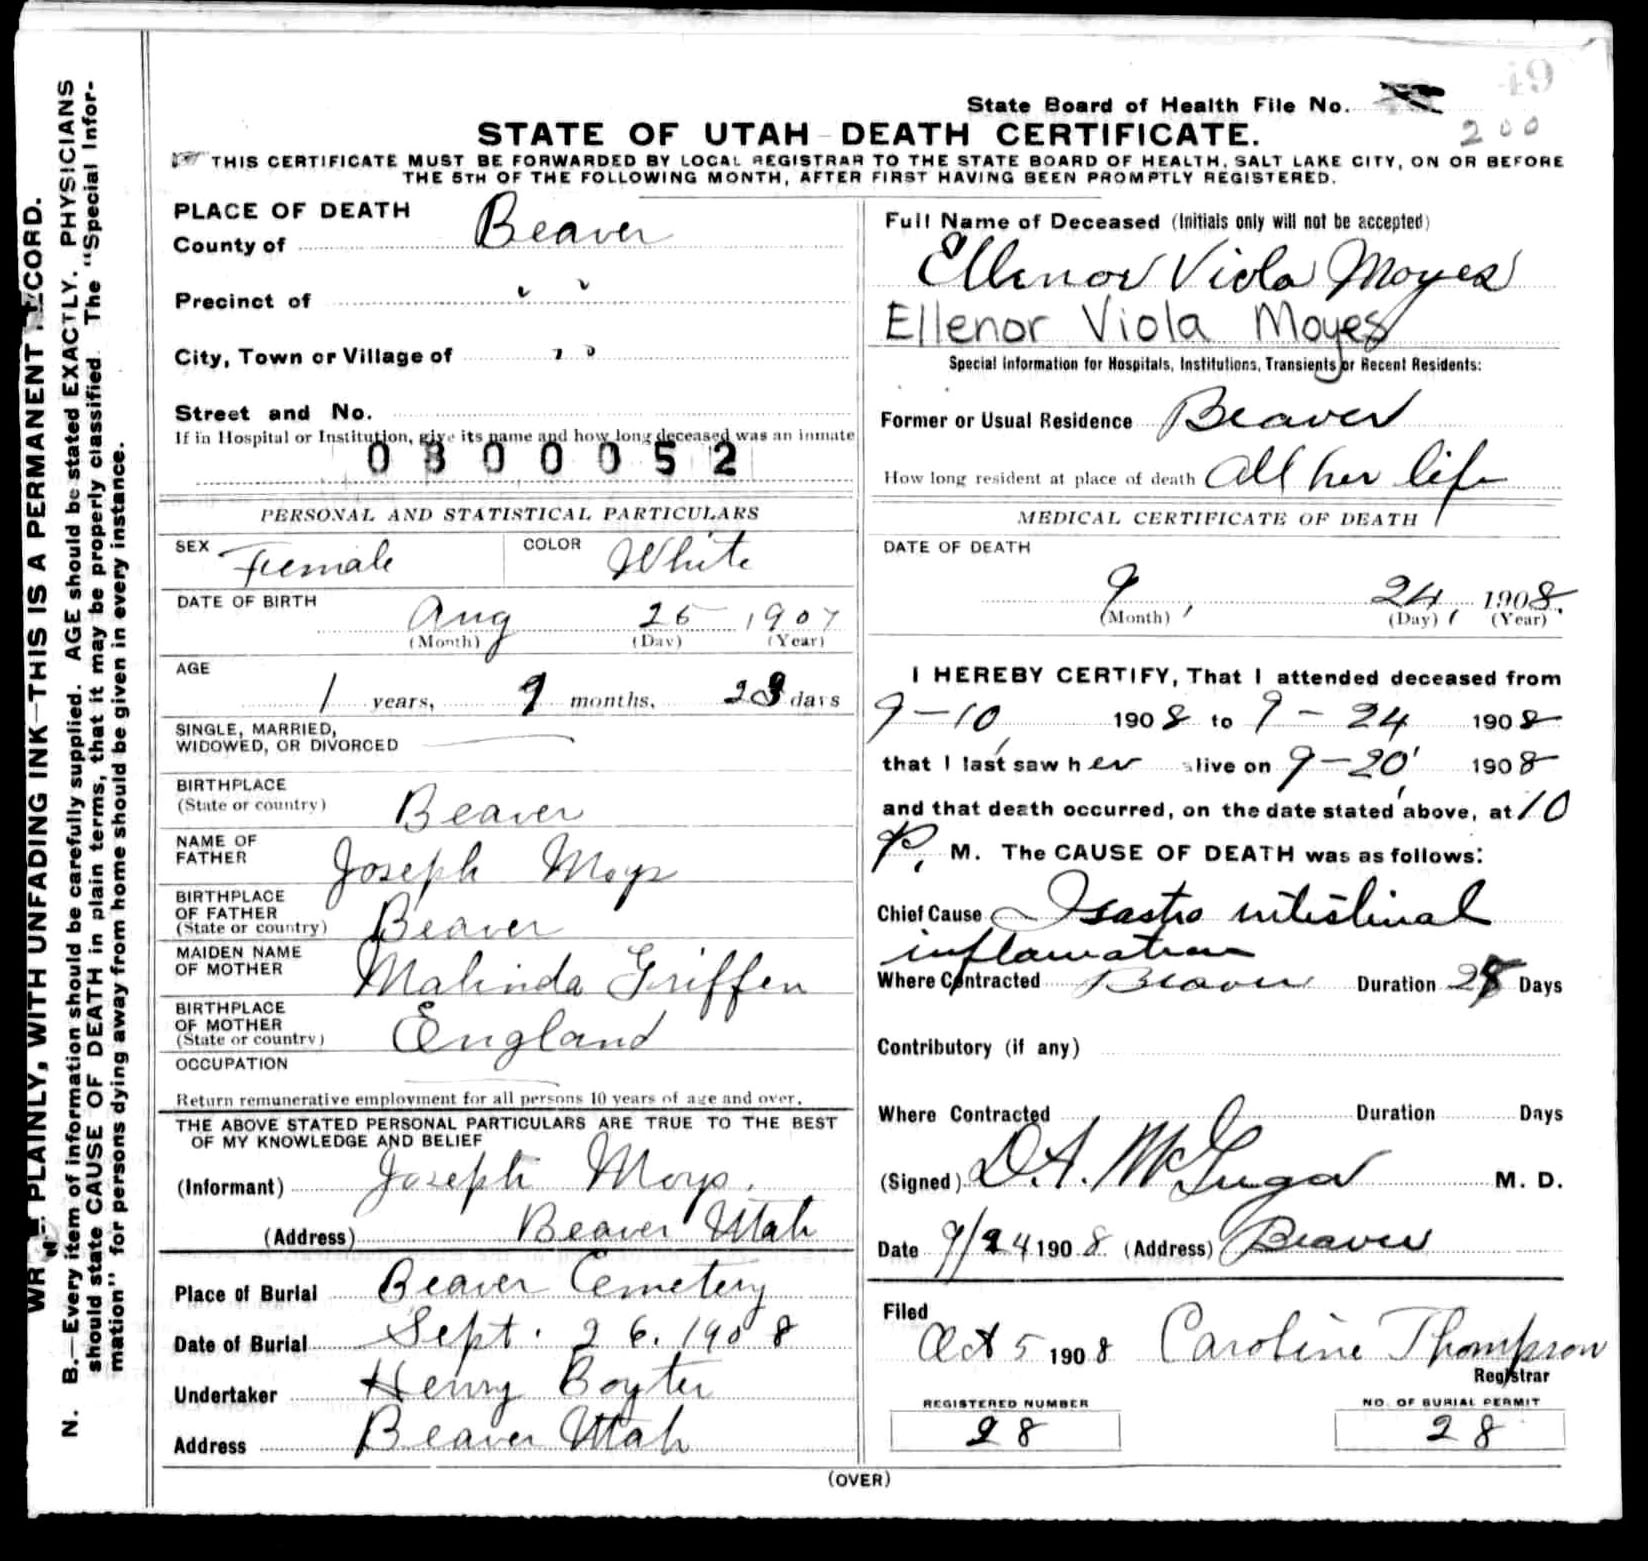 49
State Board of Health File No.
200
STATE OF UTAH—DEATH CERTIFICATE.
THIS CERTIFICATE MUST BE FORWARDED BY LOCAL REGISTRAR TO THE STATE BOARD OF HEALTH, SALT LAKE CITY, ON OR BEFORE
THE 5TH OF THE FOLLOWING MONTH, AFTER FIRST HAVING BEEN PROMPTLY REGISTERED.
WRITE PLAINLY, WITH UNFADING INK—THIS IS A PERMANENT RECORD.
N. B.—Every item of information should be carefully supplied. AGE should be stated EXACTLY. PHYSICIANS
should state CAUSE OF DEATH in plain terms, that it may be properly classified. The "Special Infor-
mation" for persons dying away from home should be given in every instance.
PLACE OF DEATH
County of Beaver
Precinct of " "
City, Town or Village of " "
Street and No.
If in Hospital or Institution, give its name and how long deceased was an inmate
0300052
PERSONAL AND STATISTICAL PARTICULARS
SEX Female COLOR White
DATE OF BIRTH
Aug 25 1907
(Month) (Day) (Year)
AGE
1 years, 9 months, days
SINGLE, MARRIED,
WIDOWED, OR DIVORCED
BIRTHPLACE
(State or country) Beaver
NAME OF
FATHER Joseph Moys
BIRTHPLACE
OF FATHER
(State or country) Beaver
MAIDEN NAME
OF MOTHER Malinda Griffen
BIRTHPLACE
OF MOTHER
(State or country) England
OCCUPATION
Return remunerative employment for all persons 10 years of age and over.
THE ABOVE STATED PERSONAL PARTICULARS ARE TRUE TO THE BEST
OF MY KNOWLEDGE AND BELIEF
(Informant) Joseph Moys.
(Address) Beaver Utah
Place of Burial Beaver Cemetery
Date of Burial Sept. 26. 1908
Undertaker Henry Boyter
Address Beaver Utah
Full Name of Deceased (Initials only will not be accepted)
Ellenor Viola Moyes
Ellenor Viola Moyes
Special Information for Hospitals, Institutions, Transients or Recent Residents:
Former or Usual Residence Beaver
How long resident at place of death All her life
MEDICAL CERTIFICATE OF DEATH
DATE OF DEATH
9, 24, 1908.
(Month) (Day) (Year)
I HEREBY CERTIFY, That I attended deceased from
9-10, 1908 to 9-24 1908
that I last saw her alive on 9-20, 1908
and that death occurred, on the date stated above, at 10
P. M. The CAUSE OF DEATH was as follows:
Chief Cause Gastro intistinal
inflamation
Where Contracted Beaver Duration Days
Contributory (if any)
Where Contracted Duration Days
(Signed) D.A. M. D.
Date 9/24 1908. (Address) Beaver
Filed
Oct 5 1908 Caroline Thompson
Registrar
REGISTERED NUMBER
28
NO. OF BURIAL PERMIT
28
(OVER)